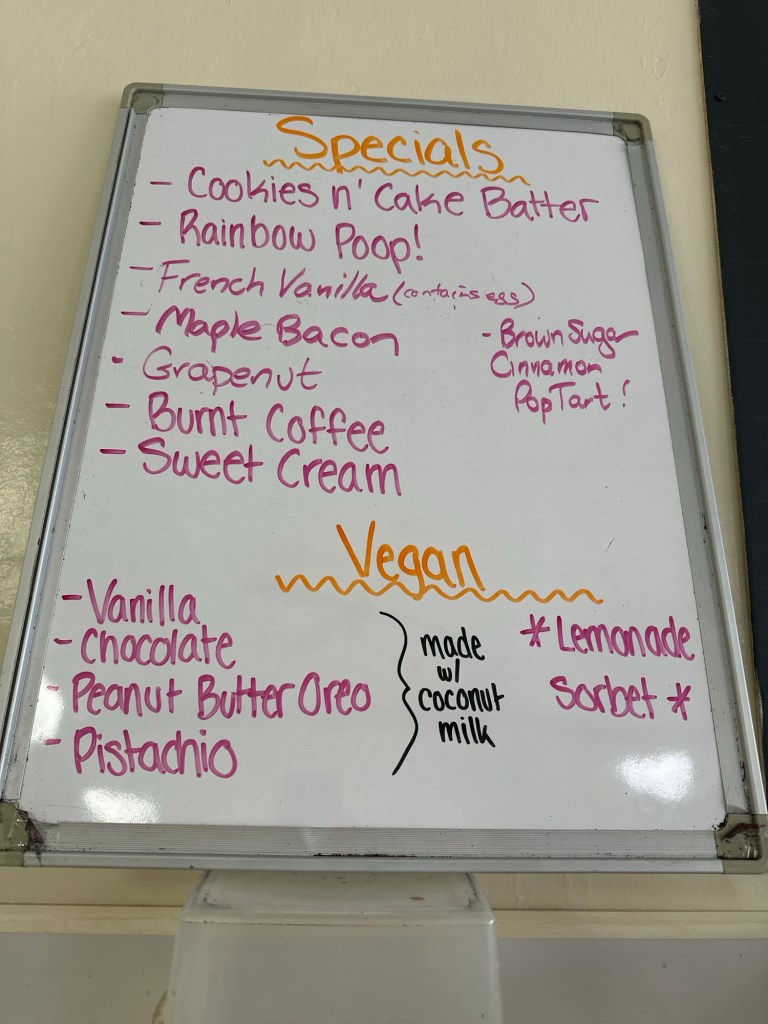 Specials
- Cookies n' Cake Batter
- Rainbow Poop!
- French Vanilla (contains egg)
- Maple Bacon
- Grapenut
- Burnt Coffee
- Sweet Cream
- Brown Sugar
Cinnamon
Pop Tart!
Vegan
- Vanilla
- Chocolate
- Peanut Butter Oreo
- Pistachio
made
w/
coconut
milk
* Lemonade
Sorbet *